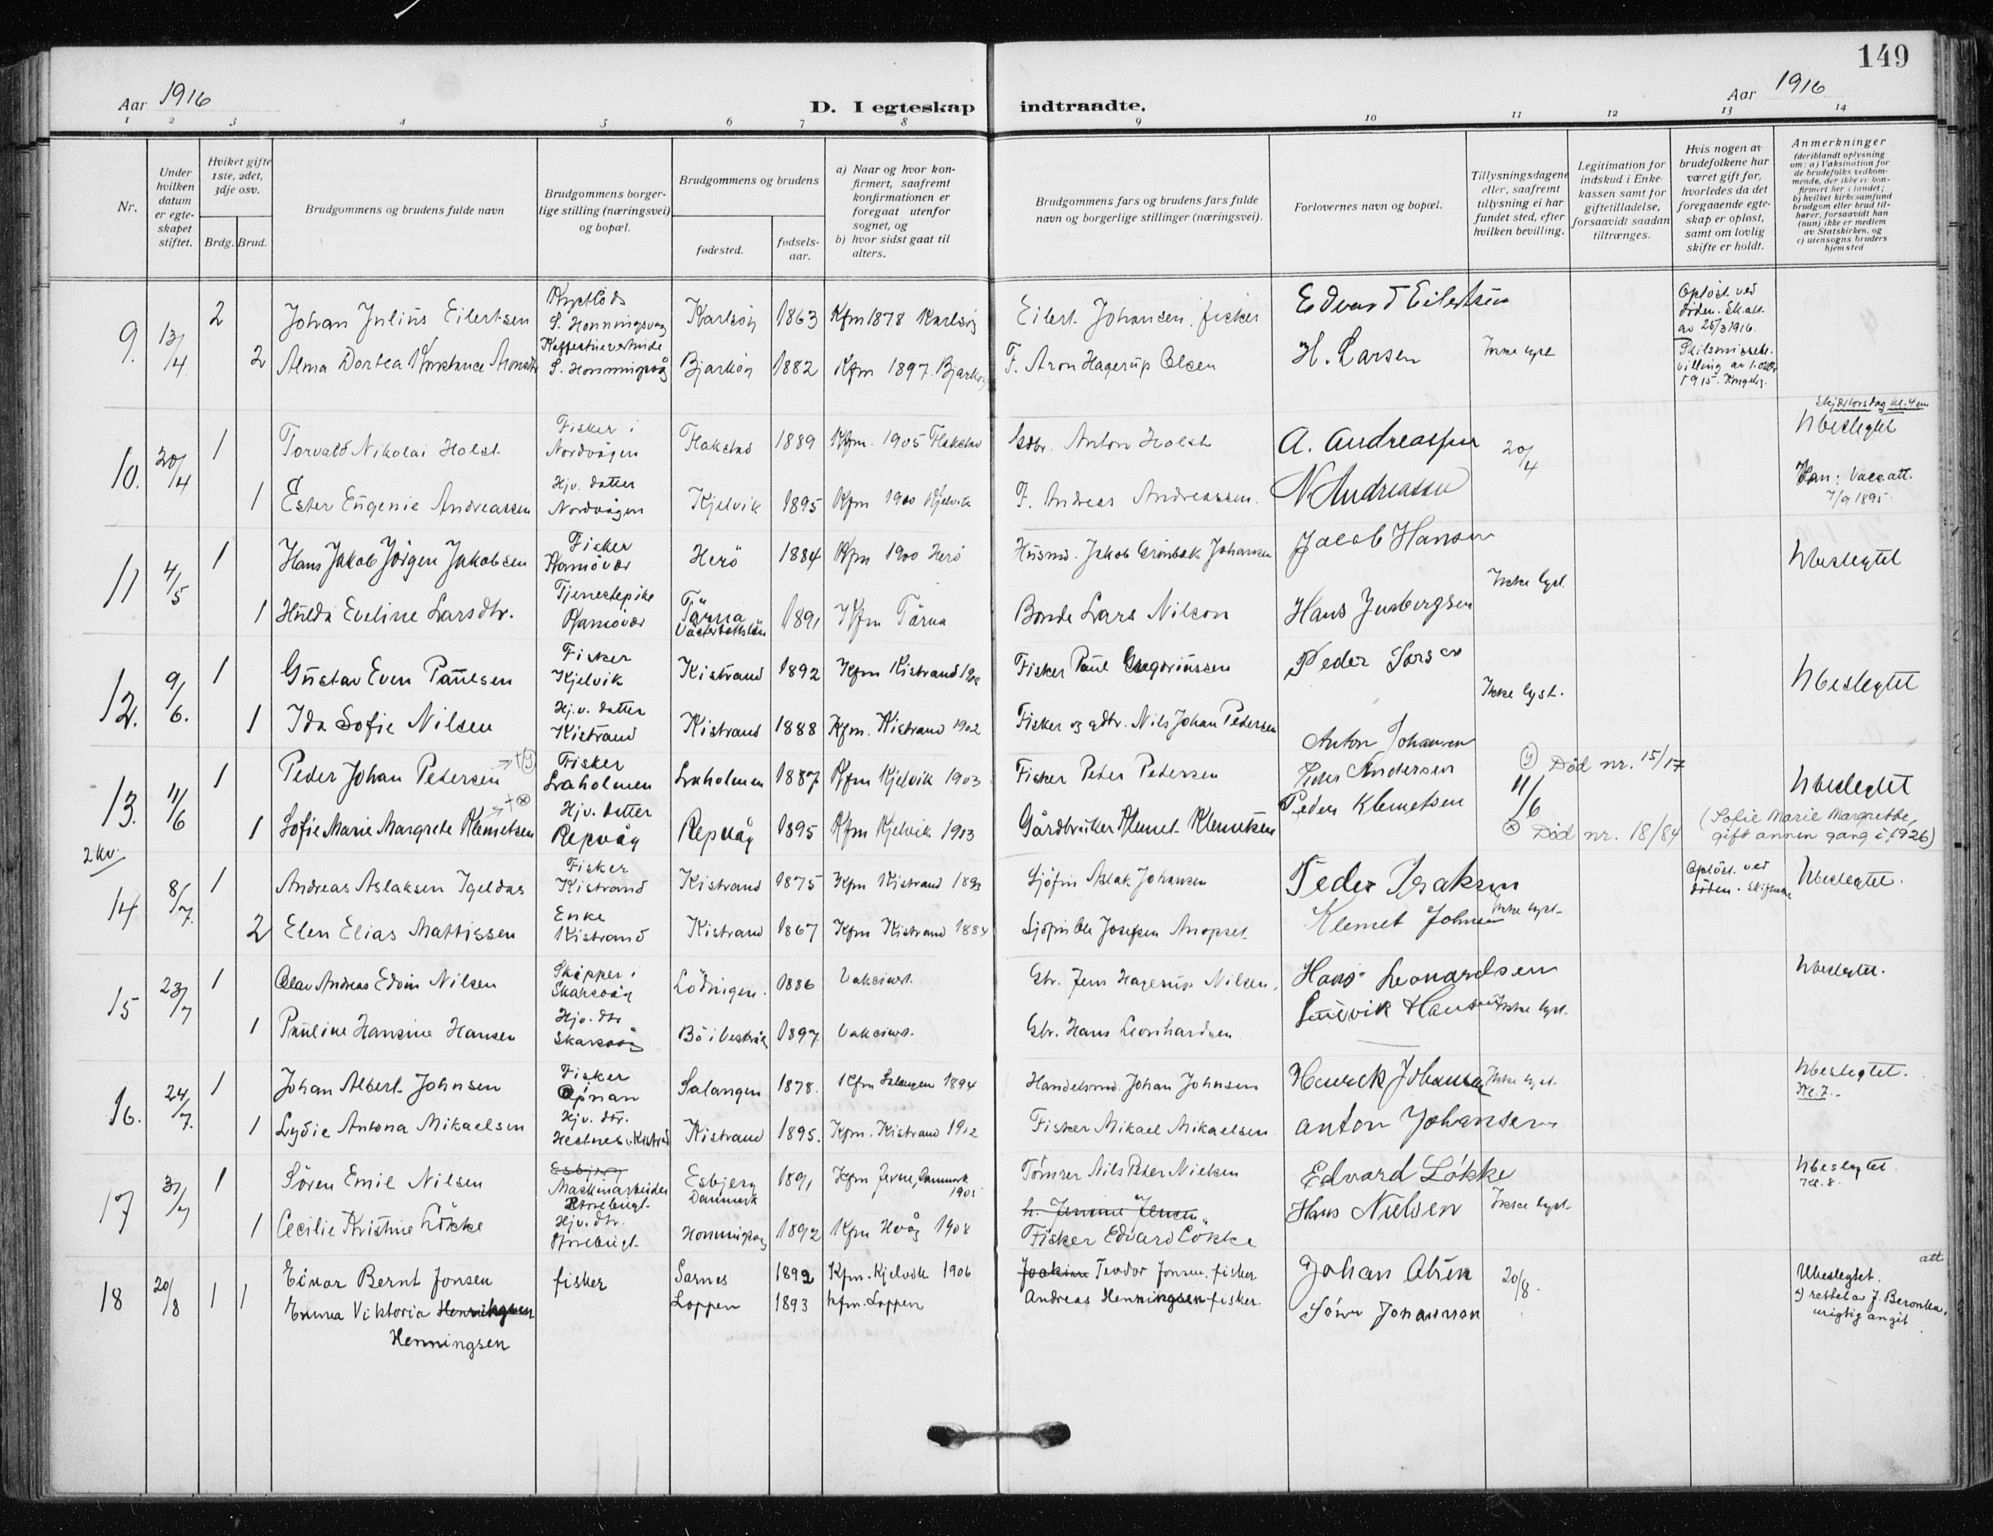 149
Aar 1916
D. I egteskap indtraadte.
Aar 1916
1 2 3 4 5 6 7 8 9 10 11 12 13 14
Nr.
Under hvilken datum er egteskapet stiftet.
Hviket gifte 1ste, 2det, 3dje osv.
Brdg. Brud.
Brudgommens og brudens fulde navn
Brudgommens borgerlige stilling (næringsvei) og bopæl.
Brudgommens og brudens
fødested.
fødselsaar.
a) Naar og hvor konfirmert, saafremt konfirmationen er foregaat utenfor sognet, og
b) hvor sidst gaat til alters.
Brudgommens fars og brudens fars fulde navn og borgerlige stillinger (næringsvei).
Forlovernes navn og bopæl.
Tillysningsdagene eller, saafremt tillysning ei har fundet sted, efter hvilken bevilling.
Legitimation for indskud i Enkekassen samt for giftetilladelse, forsaavidt saadan tiltrænges.
Hvis nogen av brudefolkene har været gift før, hvorledes da det foregaaende egteskap er opløst, samt om lovlig skifte er holdt.
Anmerkninger
(deriblandt oplysning om: a) Vaksination for de brudefolks vedkommende, der ikke er konfirmert her i landet; b) hvilket kirkesamfund brudgom eller brud tilhører, forsaavidt han (hun) ikke er medlem av Statskirken, og c) utensogns bruders hjemsted
9. 13/4 2 Johan Julius Eilertsen S. Honningsvaag Karlsöy 1863 Kfm 1878 Karlsöy Eilert Johansen, fisker Edvard Eilertsen Opløst ved döden. Sk.att. av 25/3 1916.
2 Alma Dortea Konstance S. Honningsvåg Bjarköy 1882 Kfm 1897. Bjarköy F. Aron Hagerup Olsen H. Larsen Ikke lyst 1915.
10. 20/4 1 Torvald Nikolai Holst Fisker i Nordvågen Flakstad 1889 Kfm. 1905 Flakstad Gdbr. Anton Holst A. Andreassen 20/4 Skjærtorsdag kl. 4 em Ubeslegtet
1 Ester Eugenie Andreassen Hjv. datter Nordvågen Kjelvik 1895 Kfm 1910 Kjelvik F. Andreas Andreassen. N Andreassen Han: Vacc.att. 7/9 1895.
11 4/5 1 Hans Jakob Jörgen Jakobsen Fisker Kamövær Herö 1884 Kfm 1900 Herö Husmd. Jakob Grönbæk Johansen Jacob Hansen Ikke lyst Ubeslegtet
1 Hulda Eveline Larsdtr. Tjenestepike Kamövær Tärna 1891 Kfm Tärna Bonde Lars Nilson Hans Jusbergsen
12. 9/6. 1 Gustav Even Paulsen Fisker Kjelvik Kistrand 1892 Kfm Kistrand Fisker Paul Gregoriussen Peder Larsen Ikke lyst. Ubeslegtet
1 Ida Sofie Nilsen Hj.v. datter Kistrand Kistrand 1888 Kfm. Kistrand 1902 Fisker og gdbr. Nils Johan Pedersen Anton Johansen
13. 11/6 1 Peder Johan Petersen Fisker Laxholmen Laxholmen 1887 Kfm Kjelvik 1903 Fisker Peter Petersen Peder Andersen Död nr. 15/17 11/6 Ubeslegtet
1 Sofie Marie Margrete Klemetsen Hjv. datter Repvåg Repvåg 1895 Kfm Kjelvik 1913 Gårdbruker Klemet Klemetsen Peder Klemetsen Död nr. 18/84 (Sofie Marie Margrethe, gift annen gang i 1926)
2 kv.
14 8/7. 1 Andreas Aslaksen Igeldas Fisker Kistrand Kistrand 1875 Kfm Kistrand Sjöfin Aslak Johansen Peder Isaksen Opløst ved döden. Ubeslegtet.
2 Elen Elias Mattissen Enke Kistrand Kistrand 1867 Kfm Kistrand 1884 Sjöfin Ole Josefsen Anopset Klemet Johnsen Ikke lyst.
15 23/7 1 Olav Andreas Edvin Nilsen Skipper i Skarsvåg Lödingen. 1886 Vakcinert. Gbr. Jens Hagerup Nilsen, Hans Leonardsen Ubeslegtet.
1 Pauline Hansine Hansen Hjv. dtr Skarsvåg Bö i Vesterålen 1897. Vakcinert. Gbr. Hans Leonhardsen Ludvik Hansen Ikke lyst.
16. 24/7. 1 Johan Albert Johnsen Fisker Salangen 1878. Kfm Salangen 1894 Handelsmd. Johan Johnsen Henrek Johansen Ikke lyst. Ubeslegtet. Kl. 7.
1 Lydie Antona Mikaelsen Hjv. dtr. Kistrand 1895. Kfm. Kistrand 1912 Fisker Mikael Mikaelsen anton Johansen
17 31/7 1 Sören Emil Nilsen Esbjerg Maskinarbeider Storebugt. Esbjerg Danmark 1891 Kfm Jerne, Danmark Tömrer Nils Peter Nielsen Edvard Lökke Ubeslegtet. Kl. 8.
1 Cecilie Kristine Lökke Hjv. dtr. Storebugt. Honningsvåg 1892 Kfm Hvåg 1908 Fisker Edvard Lökke Hans Nielsen Ikke lyst.
18 20/8 1 1 Einar Bernt Jonsen fisker Sarnes 1892 Kfm. Kjelvik 1906 Joakim Teodor Jonsen, fisker Johan Olsen 20/8. Ubeslegtet. att
Emma Viktoria Henriksen Loppen 1893 kfm. Loppen Andreas Henningsen fisker. rettet av J. Beronka, urigtig angit
Henningsen